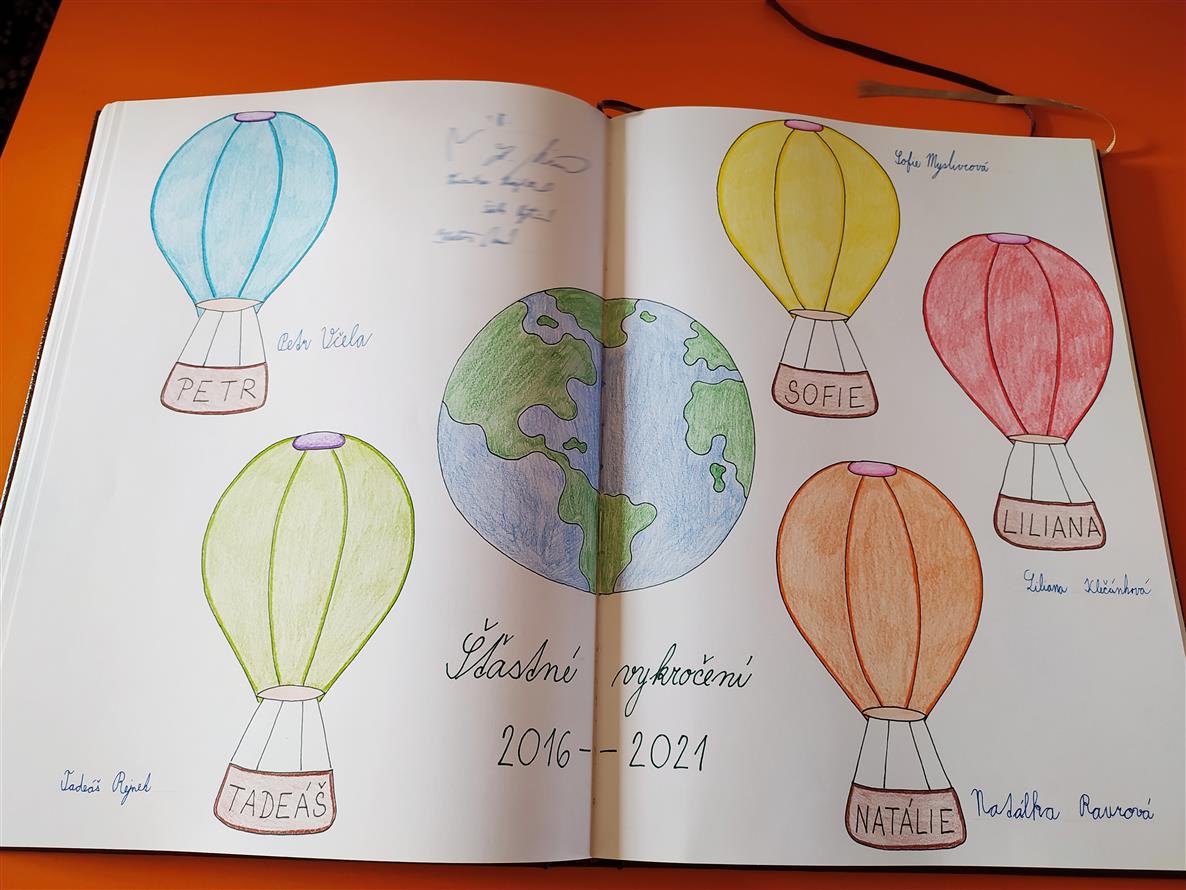 Petr Včela
PETR
TADEÁŠ
Tadeáš Rejnek
Šťastné vykročení
2016--2021
Sofie Myslivcová
SOFIE
LILIANA
Liliana Klečánková
NATÁLIE
Natálka Raurová